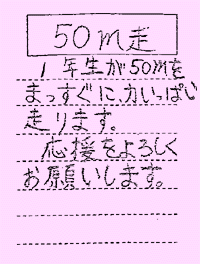 50m走
1年生が50mを
まっすぐに、力いっぱい
走ります。
応援をよろしく
お願いします。